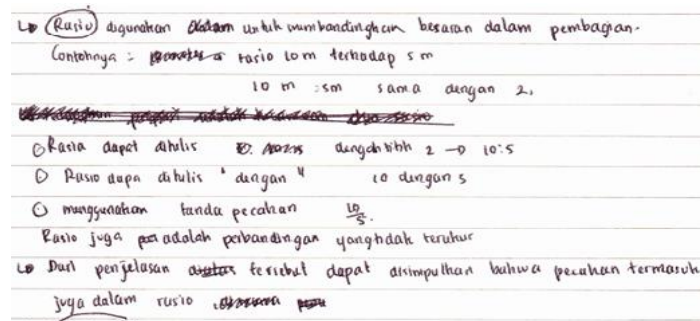 Rasio digunakan untuk membandingkan besaran dalam pembagian.
Contohnya : rasio 10m terhadap 5 m
10 m : 5m sama dengan 2,
Rasia dapat ditulis dengan titik 2 → 10:5
Rasio dapa ditulis "dengan" 10 dengan 5
menggunakan tanda pecahan 10/5.
Rasio juga adalah perbandingan yang tidak terukur
Dari penjelasan tersebut dapat disimpulkan bahwa pecahan termasuk
juga dalam rusio